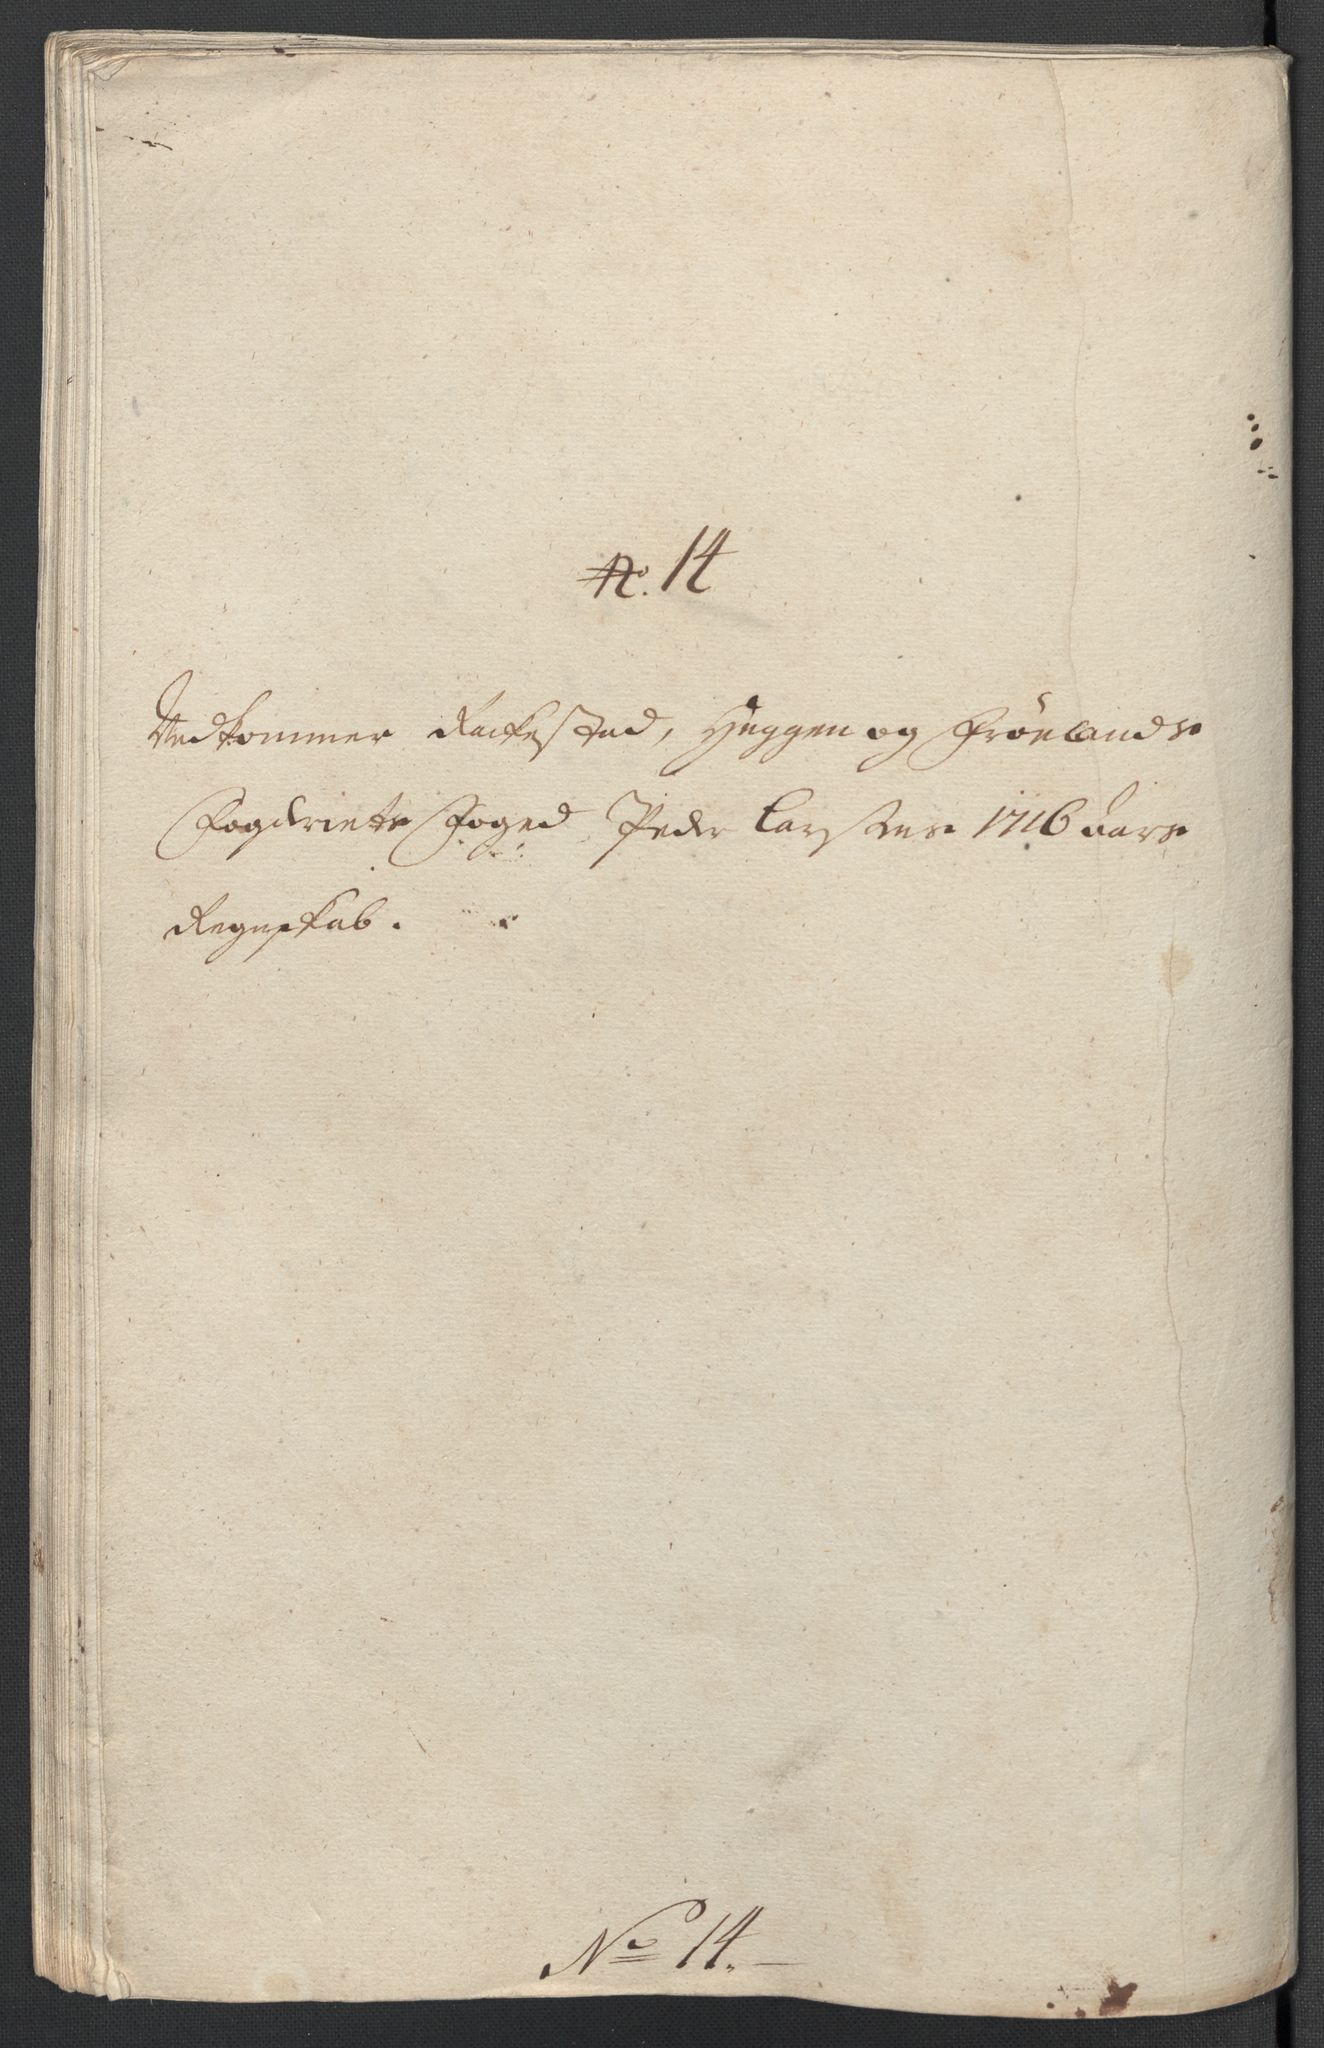 No. 14
Vedkommer Rackestad, Heggen og Frölands
Fogderiets Foged Peder Carstens 1716 aars
Regenskab.
No 14.